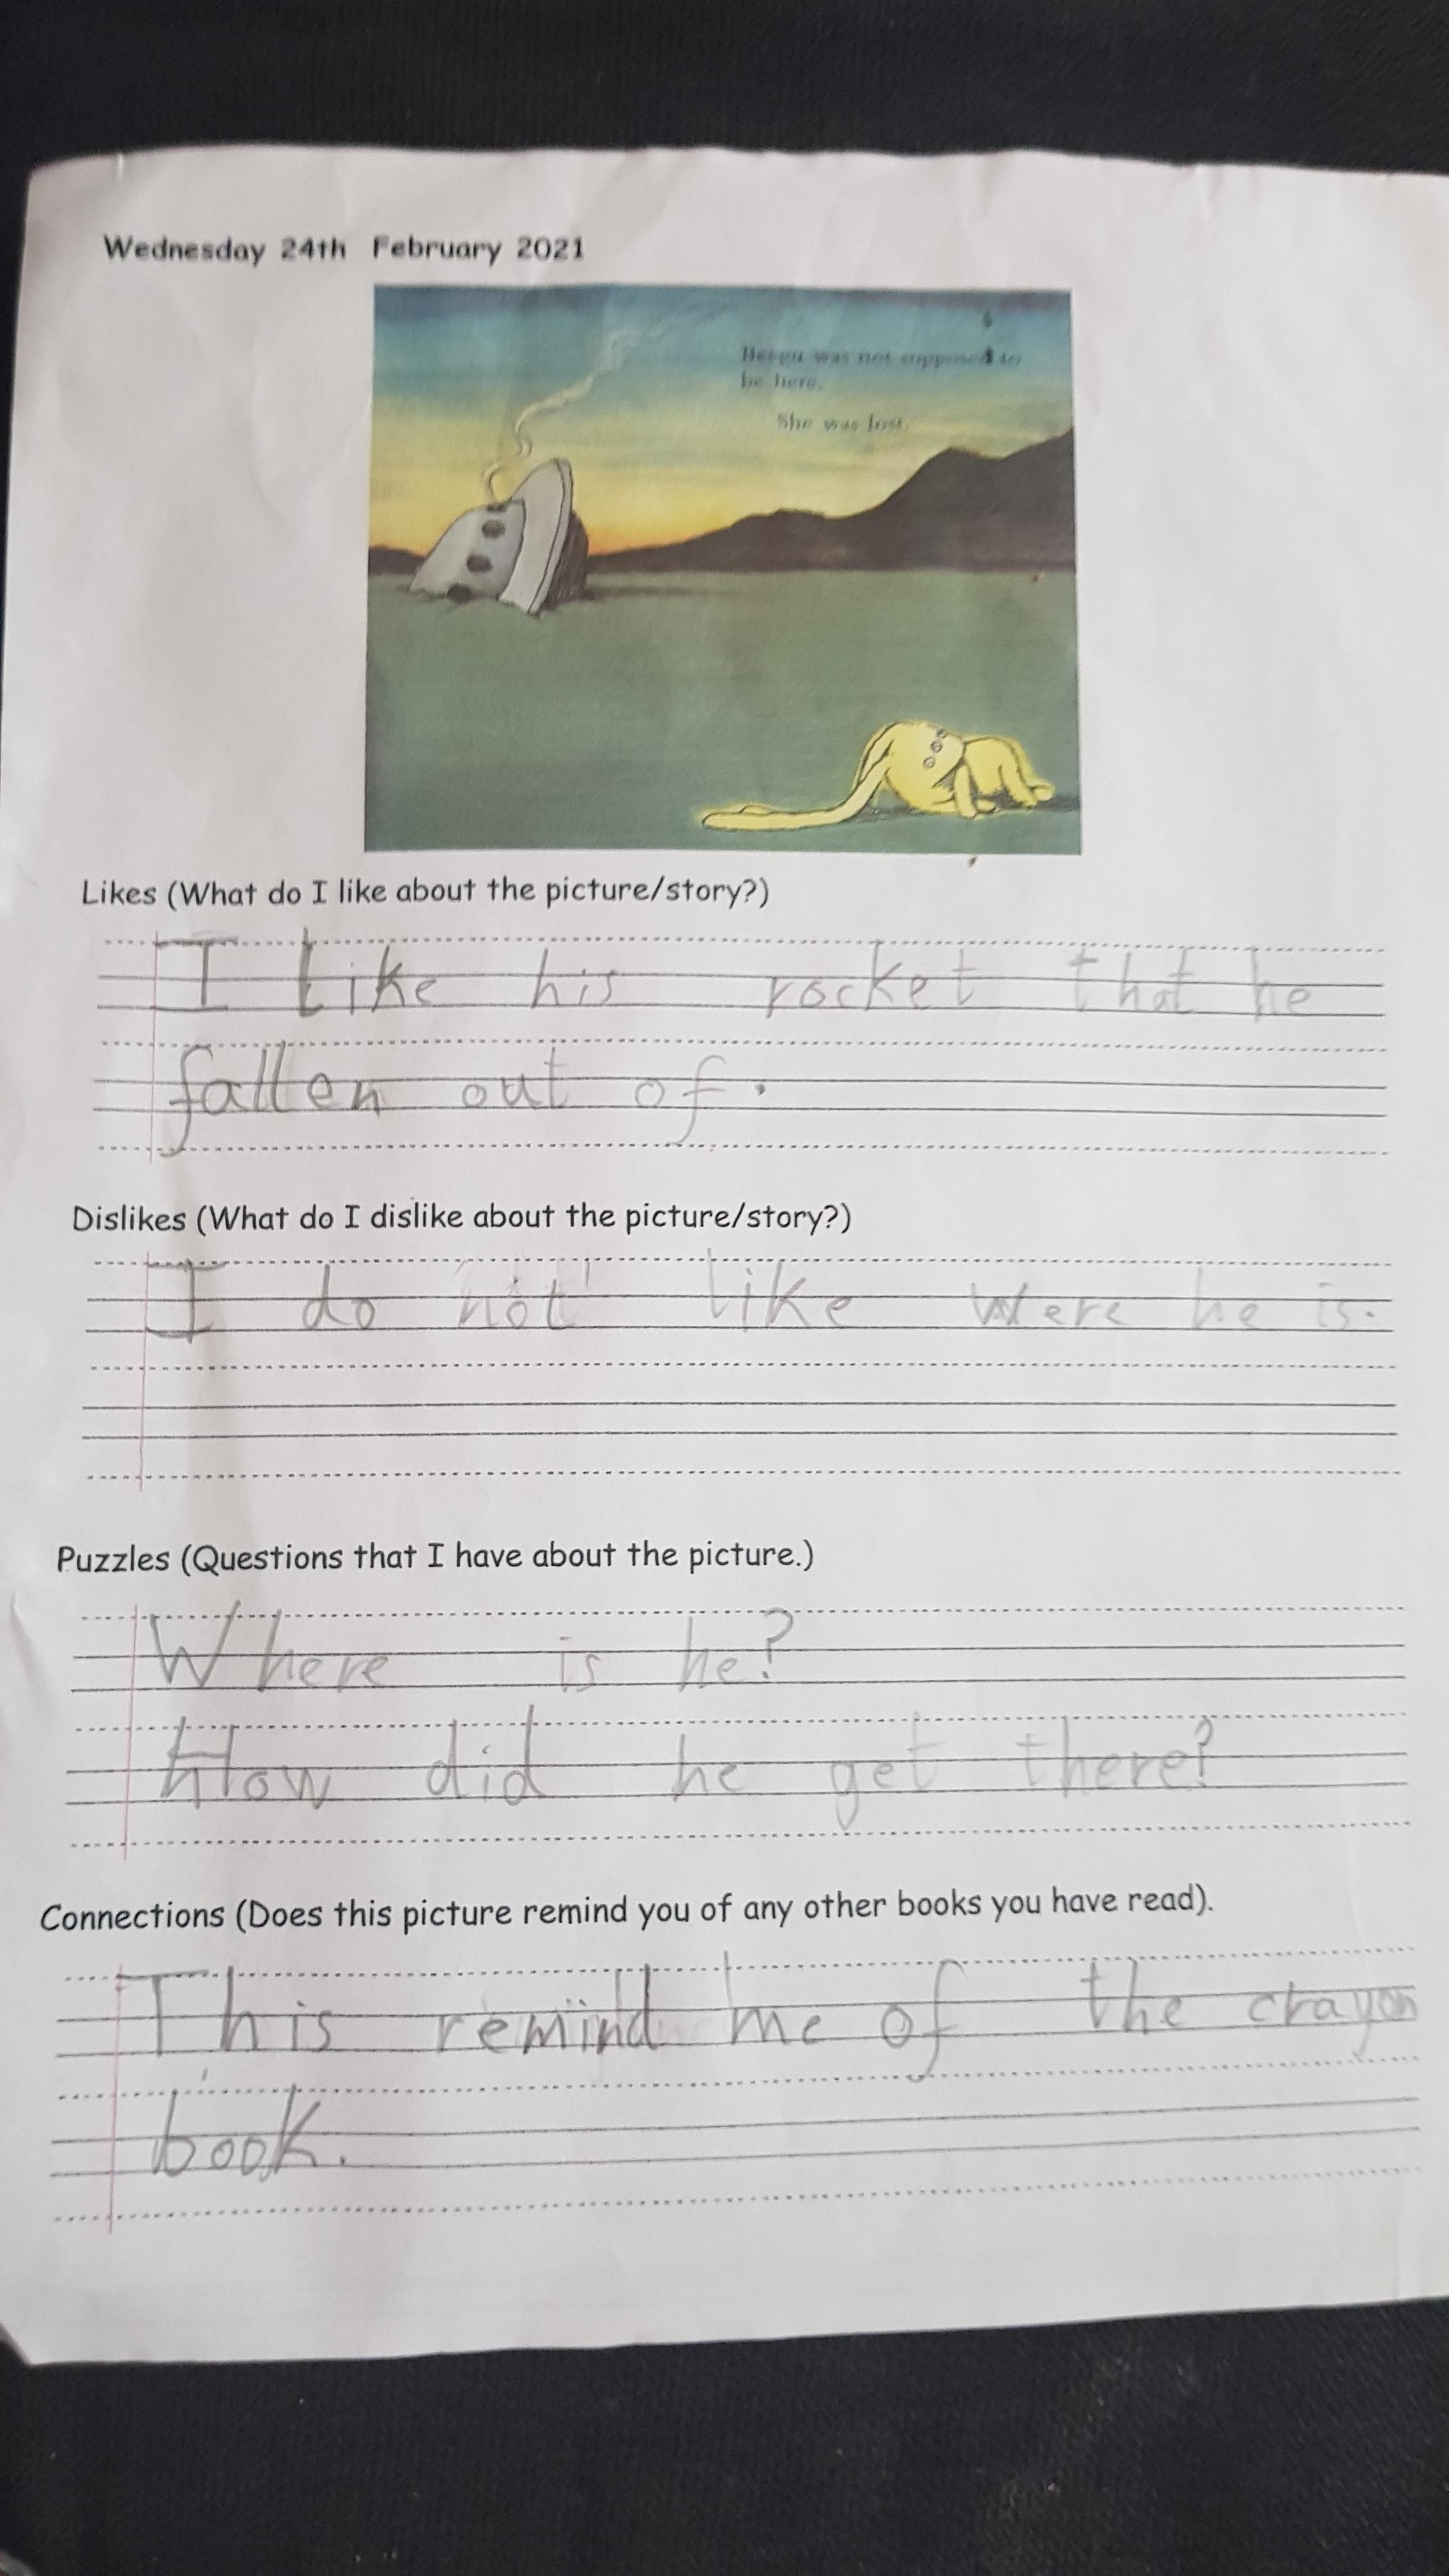 Wednesday 24th February 2021
Beegu was not supposed to
be here.
She was lost.
Likes (What do I like about the picture/story?)
I like his rocket that he
fallen out of.
Dislikes (What do I dislike about the picture/story?)
I do not like were he is.
Puzzles (Questions that I have about the picture.)
Where is he?
How did he get there?
Connections (Does this picture remind you of any other books you have read).
This remind me of the crayon
book.